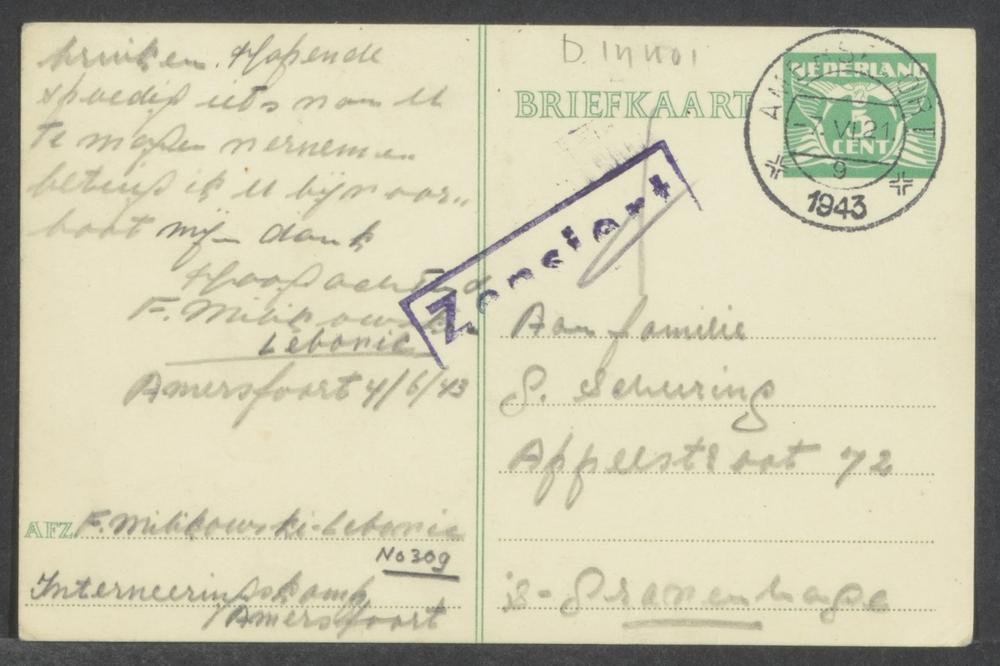 bruiken. Hopende
spoedig iets van U
te mogen vernemen
betuig ik U bij voor„
baat mijn dank
Hoogachtend
F. Milikowski
Lebovic
Amersfoort 4/6/43
AFZ. F. Milikowski-Lebovic
No 309
Interneeringskamp
Amersfoort
BRIEFKAART
NEDERLAND
5
CENT
AMERSFOORT
VI 21
9
1943
Zensiert
Aan familie
G. Scheuring
Appelstraat 72
's-Gravenhage